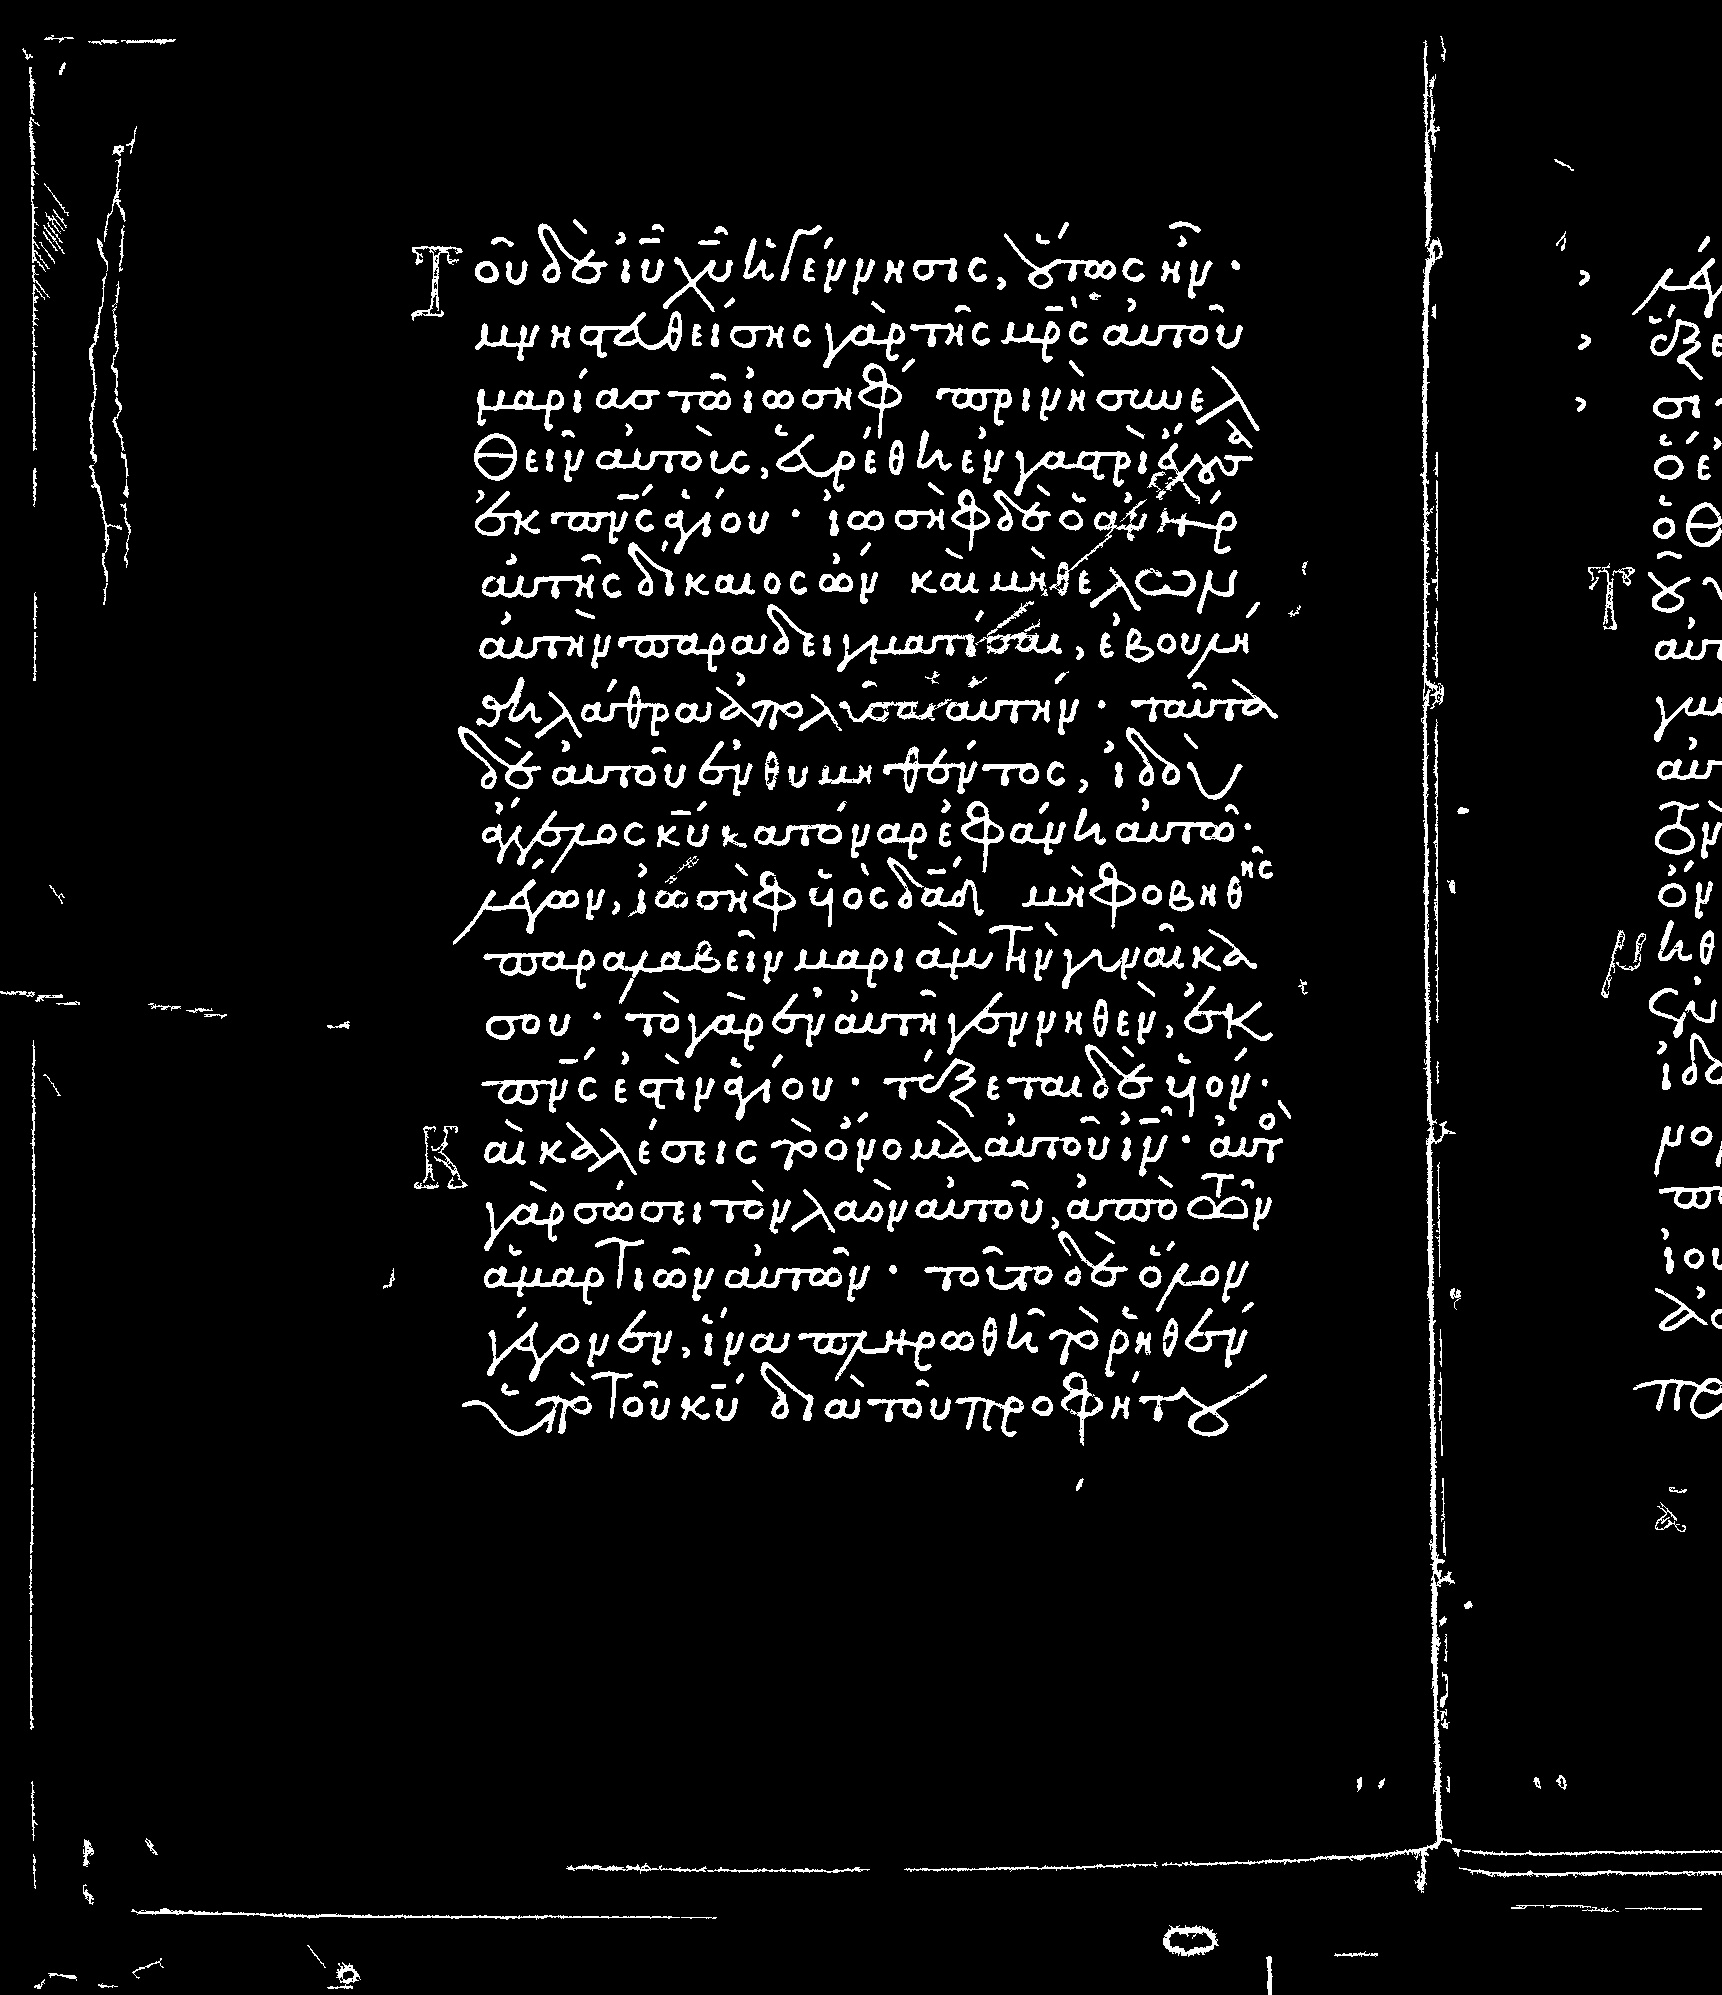 Τοῦ δὲ ἰῦ χῦ ἡ γέννησις, οὕτως ἦν·
μνηστευθείσης γὰρ τῆς μρ̅ς αὐτοῦ
μαρίας τῶ ἰωσήφ πρινὴ συνελ
θεῖν αὐτοὺς, εὑρέθη ἐν γαστρὶ ἔχουσα
ἐκ πν̅ς ἁγίου· ἰωσὴφ δὲ ὁ ἀνὴρ
αὐτῆς δίκαιος ὢν καὶ μὴ θέλων
αὐτὴν παραδειγματίσαι, ἐβουλή
θη λάθρα ἀπολῦσαι αὐτήν· ταῦτα
δὲ αὐτοῦ ἐνθυμηθέντος, ἰδοὺ
ἄγγελος κ̅υ κατ όναρ ἐφάνη αὐτῶ·
λέγων, ἰωσὴφ υἱὸς δα̅δ μὴ φοβηθῆς
παραλαβεῖν μαριὰμ τὴν γυναῖκα
σου· τὸ γὰρ ἐν αὐτῆ γεννηθὲν, ἐκ
πν̅ς ἐστὶν ἁγίου· τέξεται δὲ υἱόν·
Καὶ καλέσεις τὸ ὄνομα αὐτοῦ ἰν̅· αὐτὸς
γὰρ σώσει τὸν λαὸν αὐτοῦ, ἀπὸ τῶν
ἁμαρτιῶν αὐτῶν· τοῦτο δὲ ὅλον
γέγονεν, ἵνα πληρωθῆ τὸ ῥηθὲν
ὑπὸ τοῦ κ̅υ διὰ τοῦ προφήτου